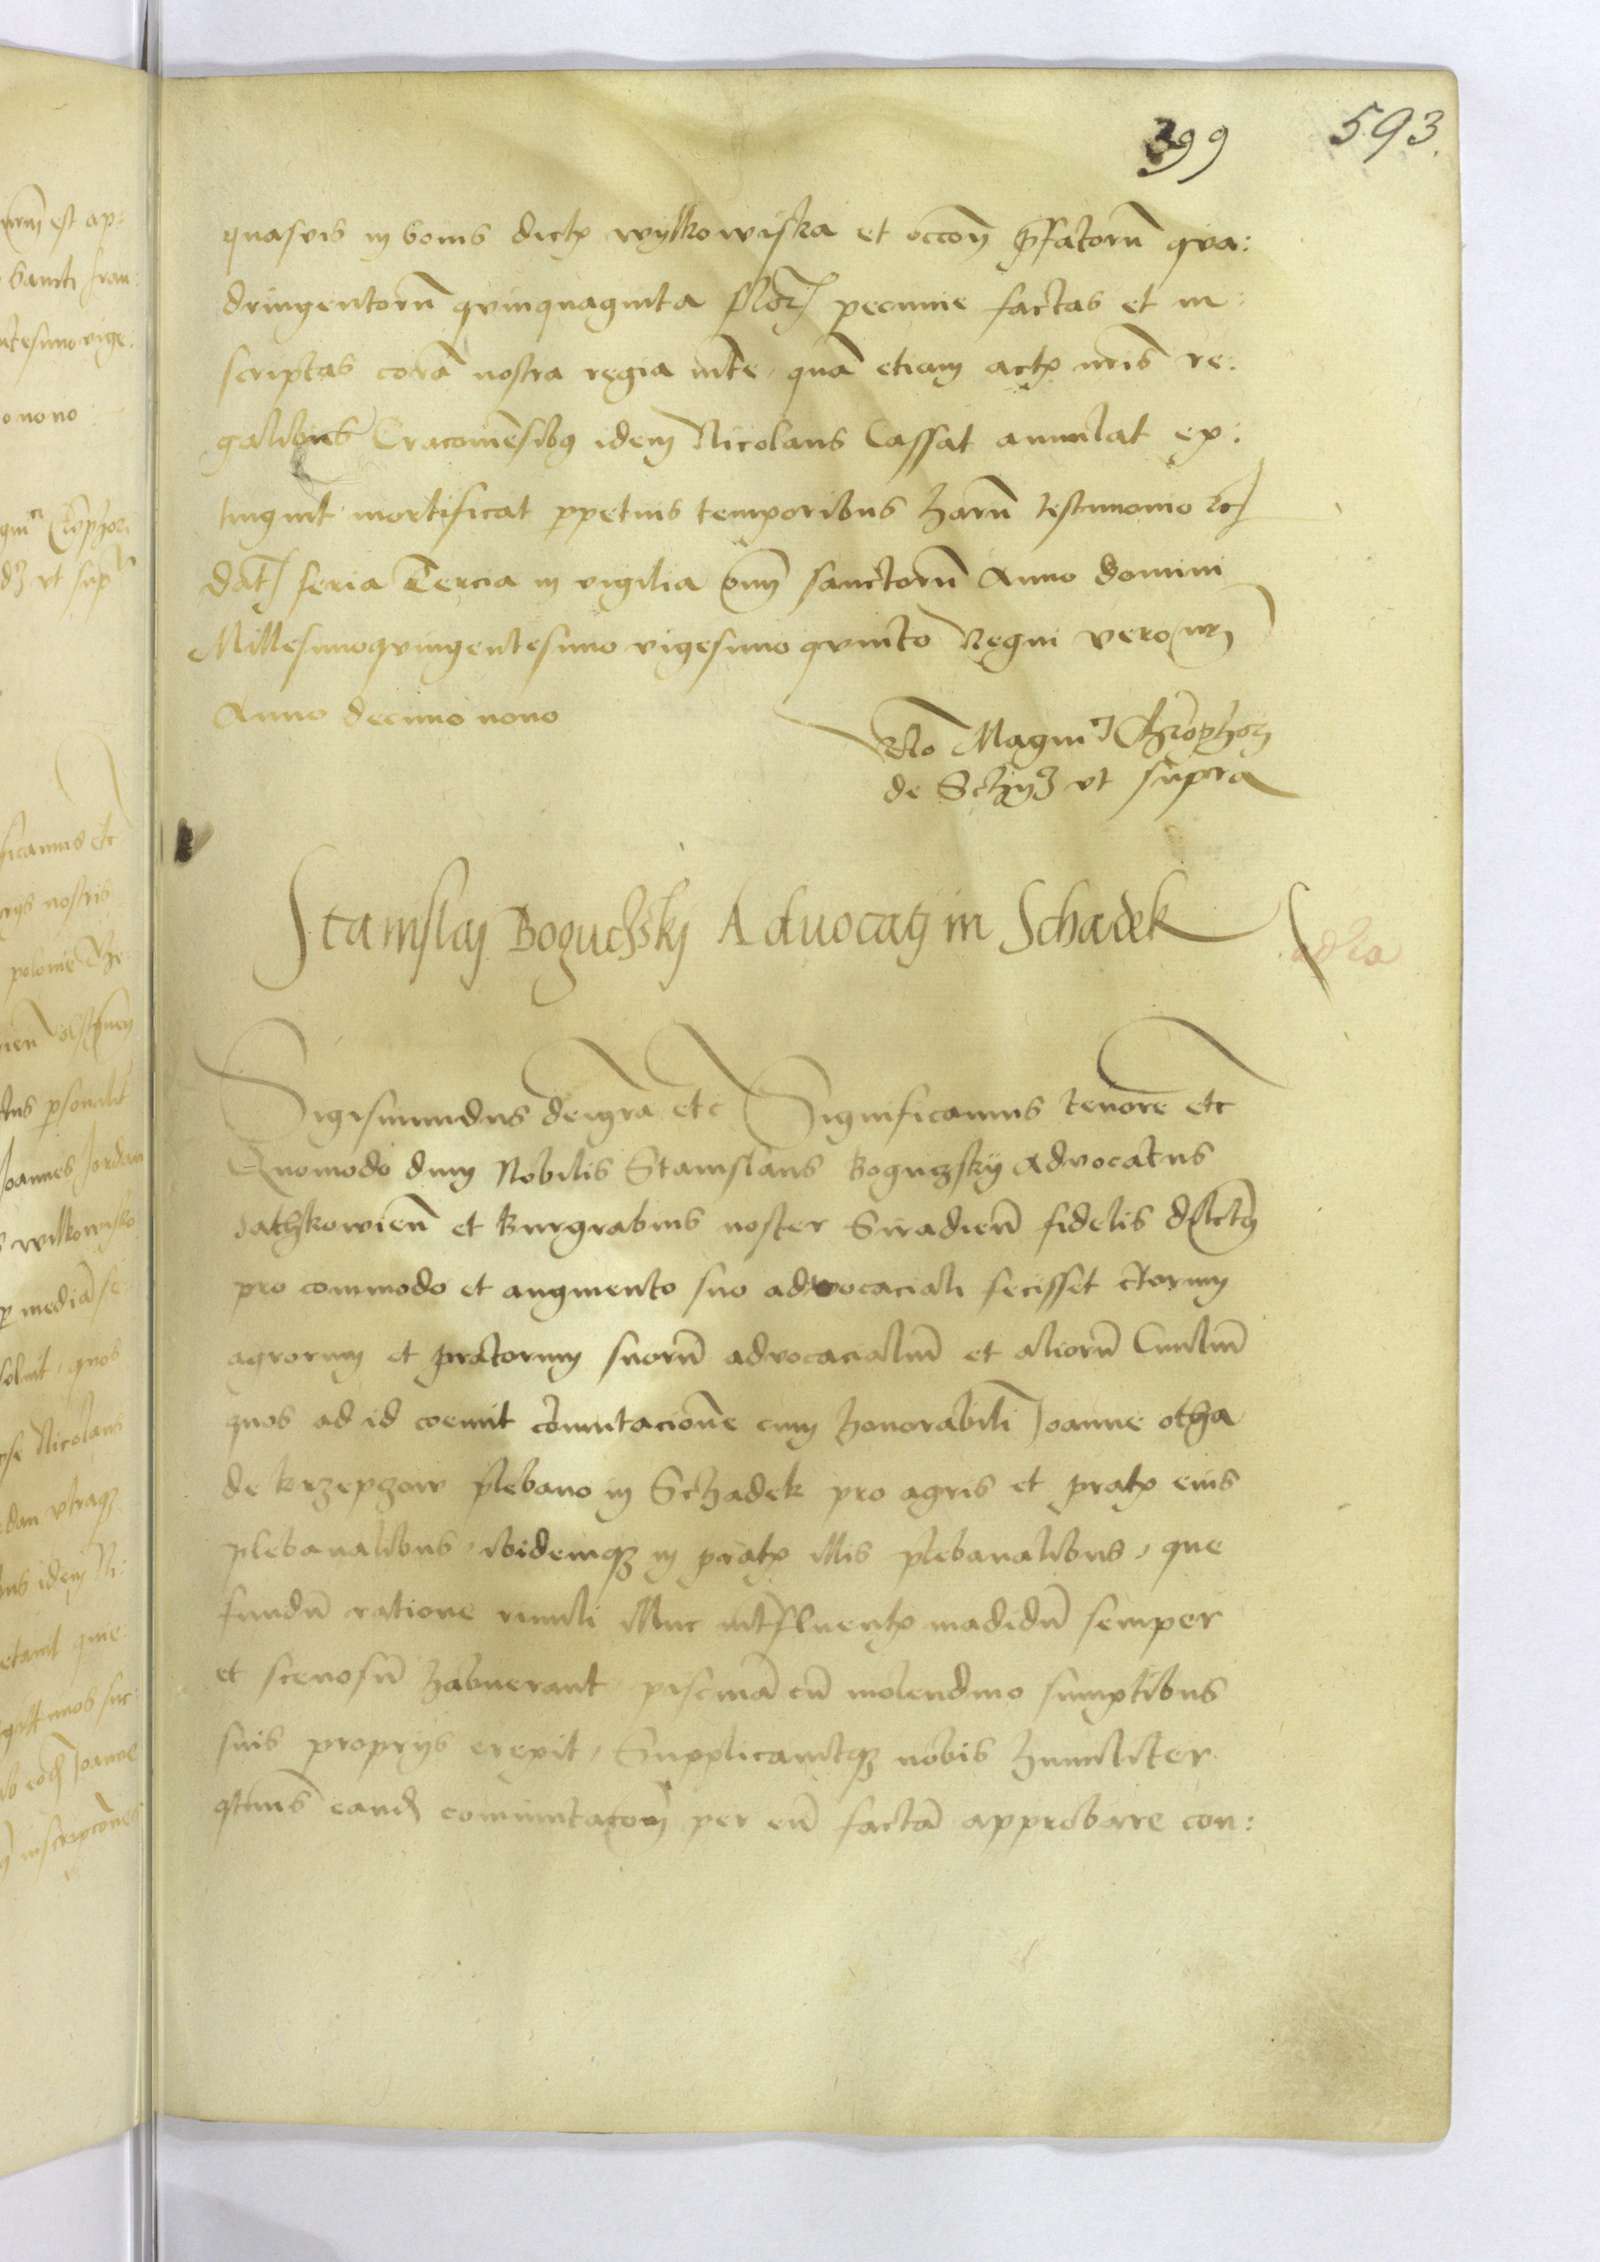 399 593.
quasvis in bonis dictis wylkowiska et occōn p̄fatorū qua:
dringentorū quinquaginta flor pecunie factas et in:
scriptas corā nostra regia mte quā etiam actis nris re:
galibus Cracovien̄sibus idem Nicolaus Cassat annulat ex:
tinguit mortificat ppetuis temporibus harū testimonio etc
dat feria Tercia in vigilia om̄ sanctorū Anno domini
Millesimoquingentesimo vigesimo quinto Regni vero nri
Anno decimo nono
Rlo Magnci Chrophori
de Schydlo ut supra
Stanislaj Boguchski Advocatj in Schadek
Sigismundus dei gra etc Significamus tenore etc
Quomodo dum Nobilis Stanislaus Boguczskij Advocatus
et Burgrabius noster Siradien̄ fidelis dilectus
pro commodo et augmento suo advocaciali fecisset certorum
agrorum et pratorum suorū advocacialiū et aliorū Civiliū
quos ad id coemit cōmutacionē cum honorabili Joanne otha
de Krzepczow plebano in Schadek pro agris et pratis eius
plebanalibus, ibidemq in pratis illis plebanalibus, que
fundū ratione rivuli illuc intfluentis madidū semper
et scenosū habuerant piscinā cū molendino sumptibus
suis propriis erexit, Supplicavitq nobis humiliter
qtinus eand commutacōm per eū factā approbare con: